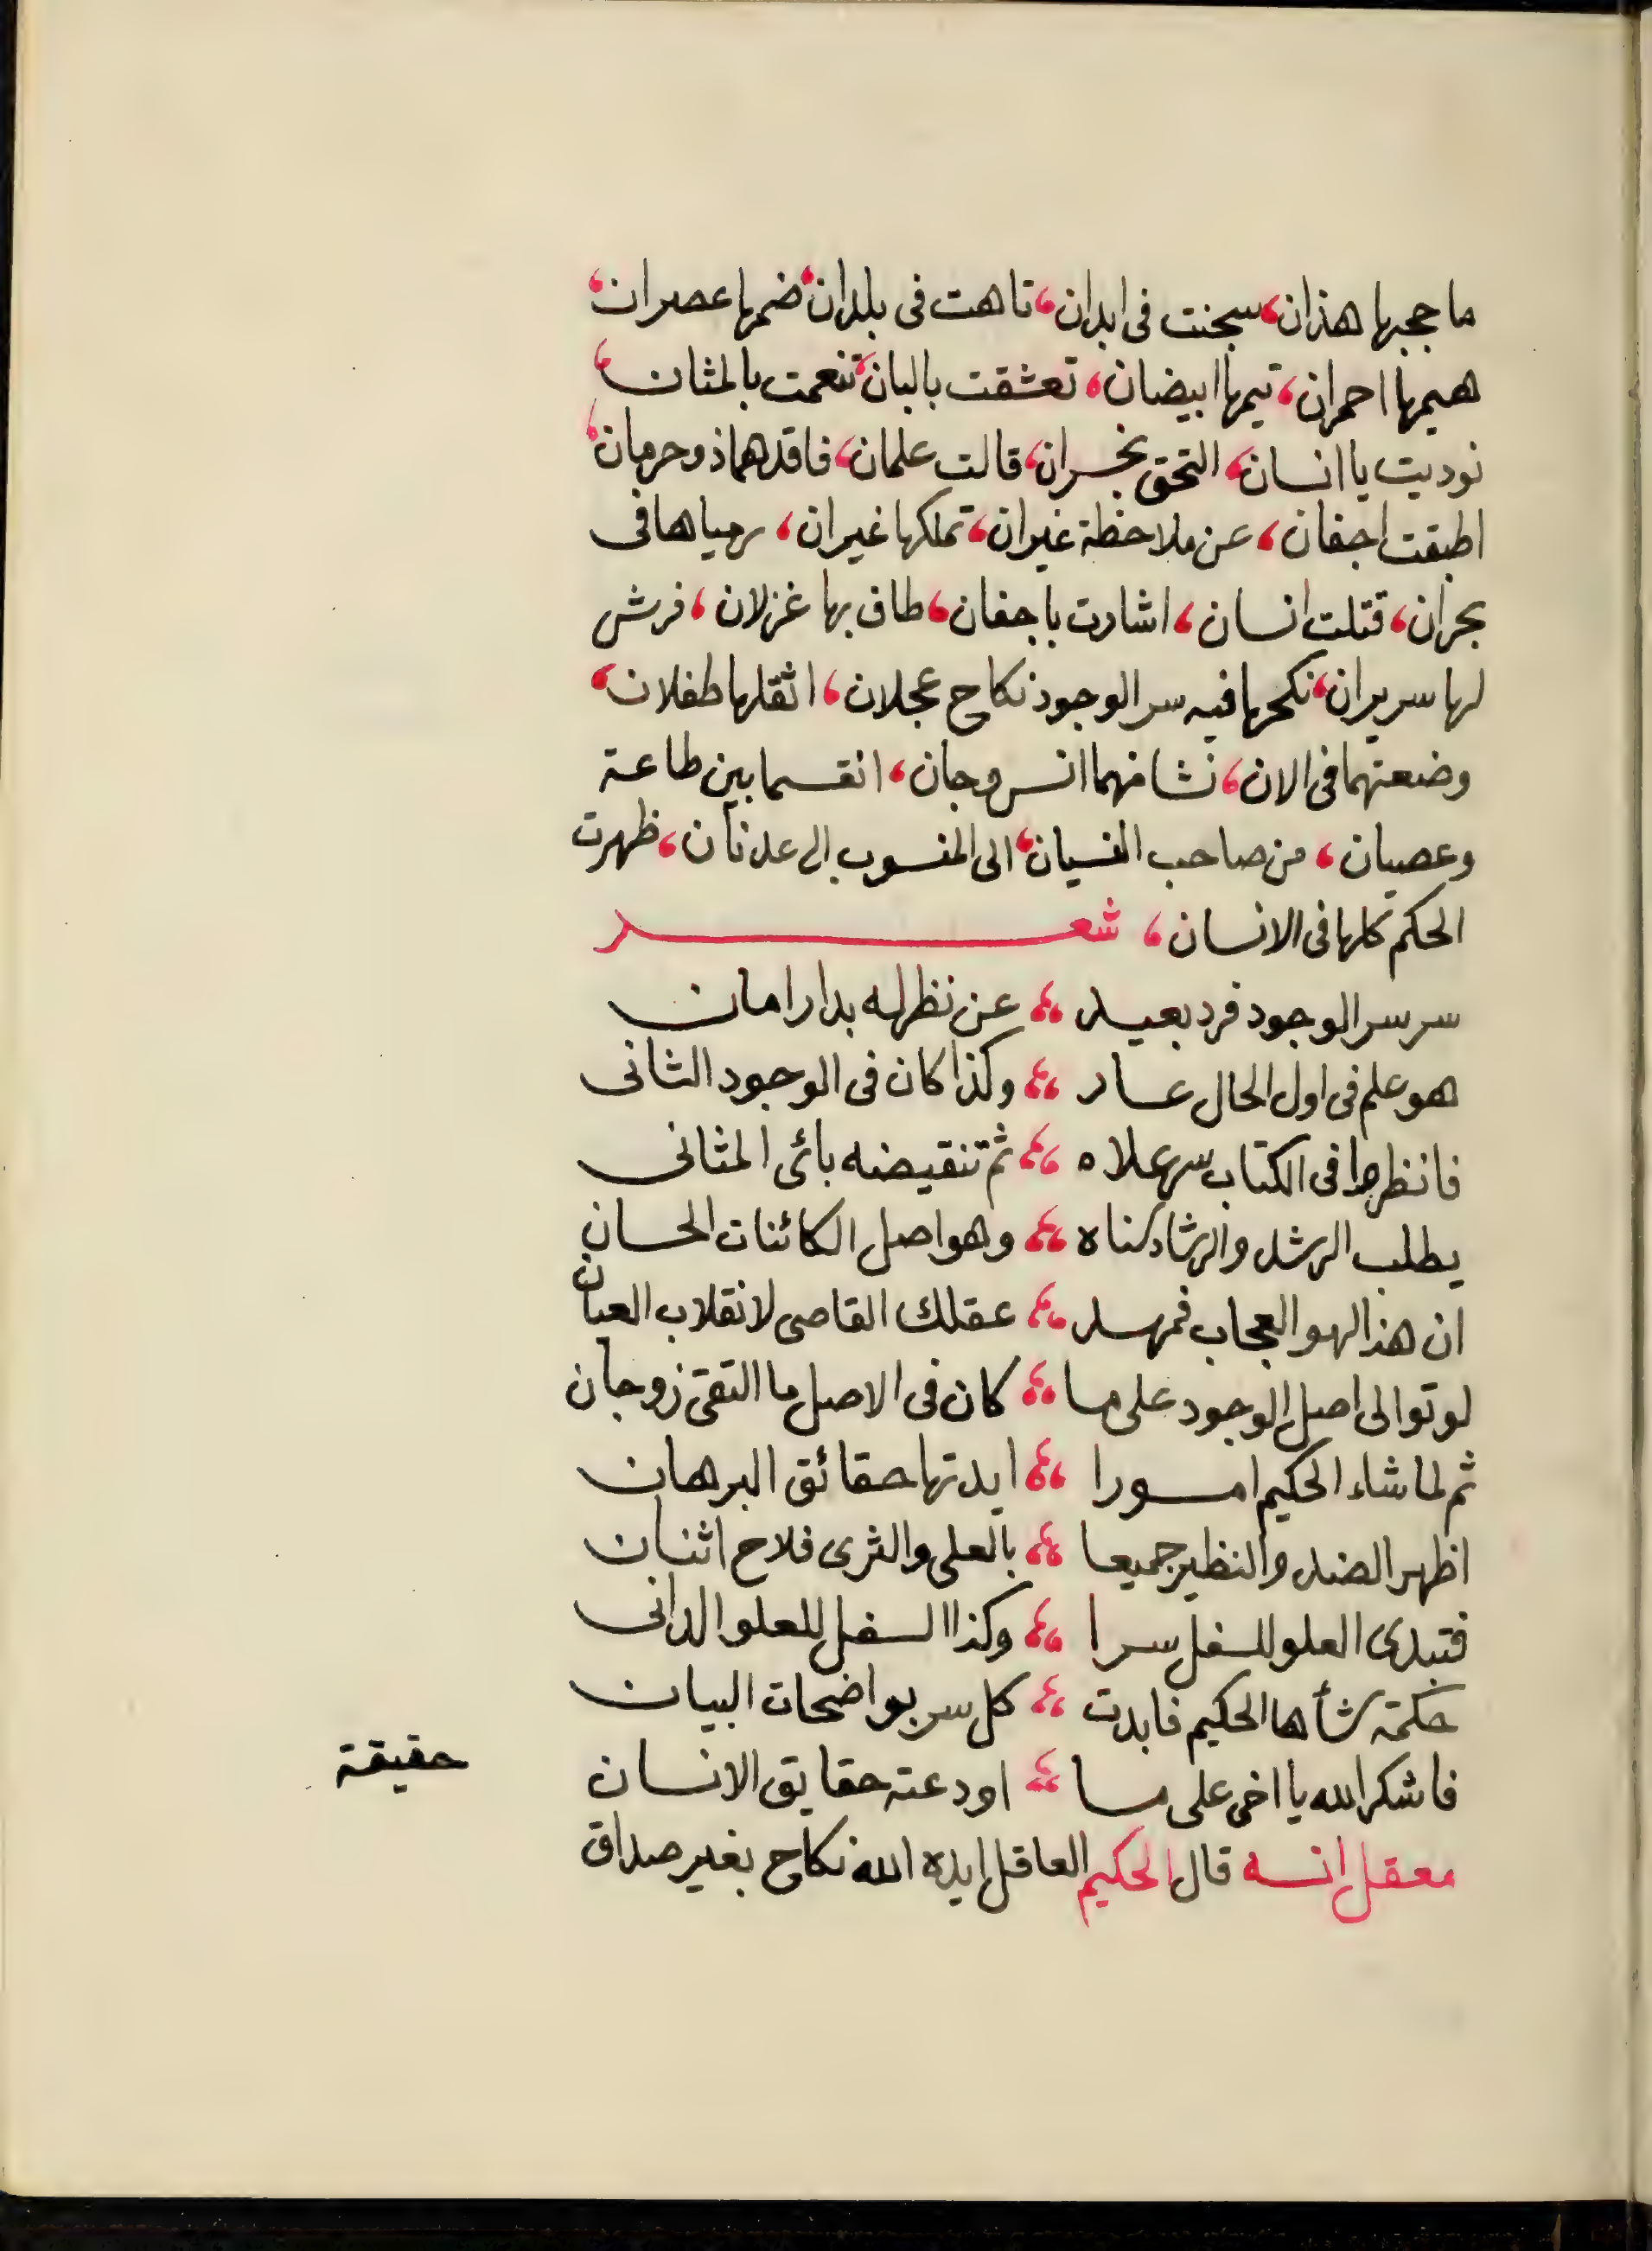 ما حجبها هذان، سجنت فى ابدان، تاهت فى بلدان، ضمها عصران،
هيمها احمران، تيمها ابيضان، تعشقت بالبان، تنعمت بالمثان،
نوديت يا انسان، التحق بخسران، قالت علمان، فاقدهما ذو حرمان،
اطبقت اجفان، عن ملاحظة غيران، تملكها غيران، رمياها فى
بحران، قتلت انسان، اشارت باجفان، طاف بها غزلان، فرش
لها سريران، نكحها فيه سر الوجود نكاح عجلان، اثقلها طفلان،
وضعتهما فى الان، نشا منهما انس وجان، انقسما بين طاعة
وعصيان، من صاحب النسيان، الى المنسوب الى عدنان، ظهرت
الحكم كلها فى الانسان، شعر
سر سر الوجود فرد بعيد ،، عن نظر له بدار امان
هو علم فى اول الحال عار ،، وكذا كان فى الوجود الثانى
فانظرها فى الكتاب علاه ،، ثم تنقيضه بائ المثانى
يطلب الرشد والرشاد كناه ،، وهو اصل الكائنات الحسان
ان هذا لهو العجاب فمهد ،، عقلك القاصى لانقلاب العيان
لو توالى اصل الوجود على ما ،، كان فى الاصل ما التقى زوجان
ثم لما شاء الحكيم امورا ،، ايدتها حقائق البرهان
اظهر الضد والنظير جميعا ،، بالعلى والثرى فلاح اثنان
فتبدى العلو للسفل سرا ،، وكذا السفل للعلو الدانى
حكمة شأها الحكيم فابدت ،، كل سر بواضحات البيان
فاشكر الله يا اخى على ما ،، اودعته حقايق الانسان
حقيقة
معقل انسه قال الحكيم العاقل ايده الله نكاح بغير صداق